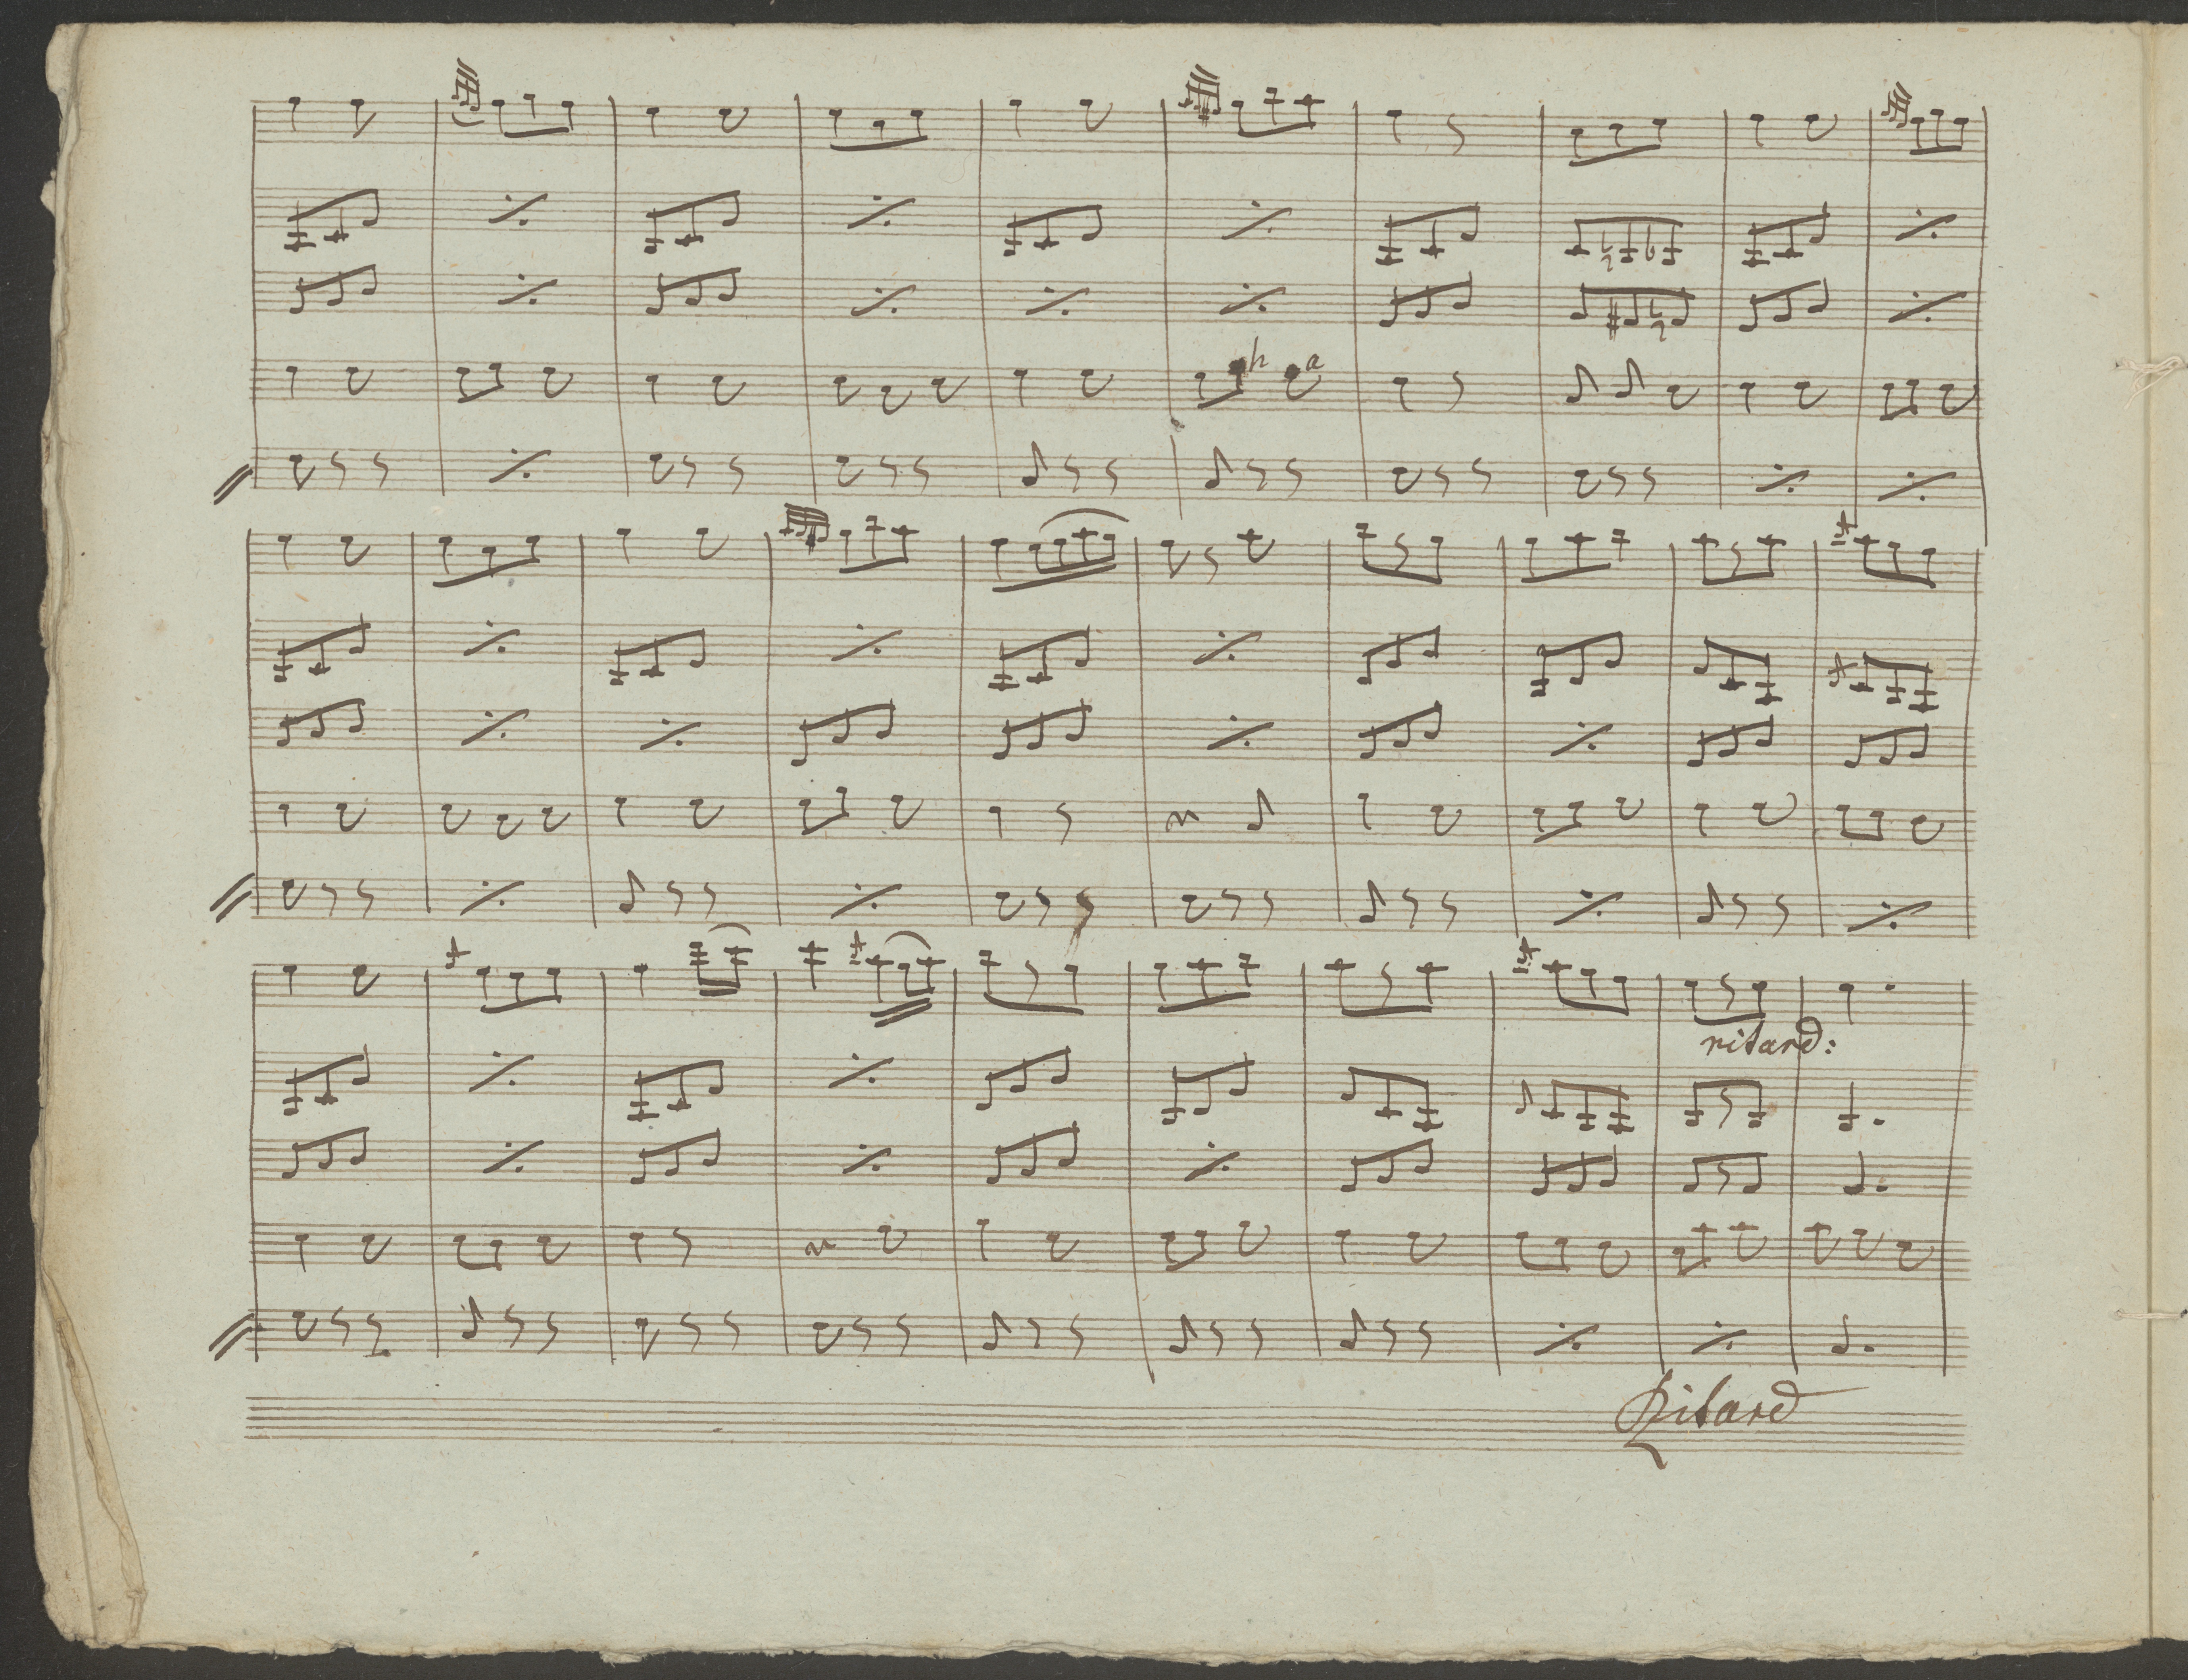 h a
ritard:
Ritard